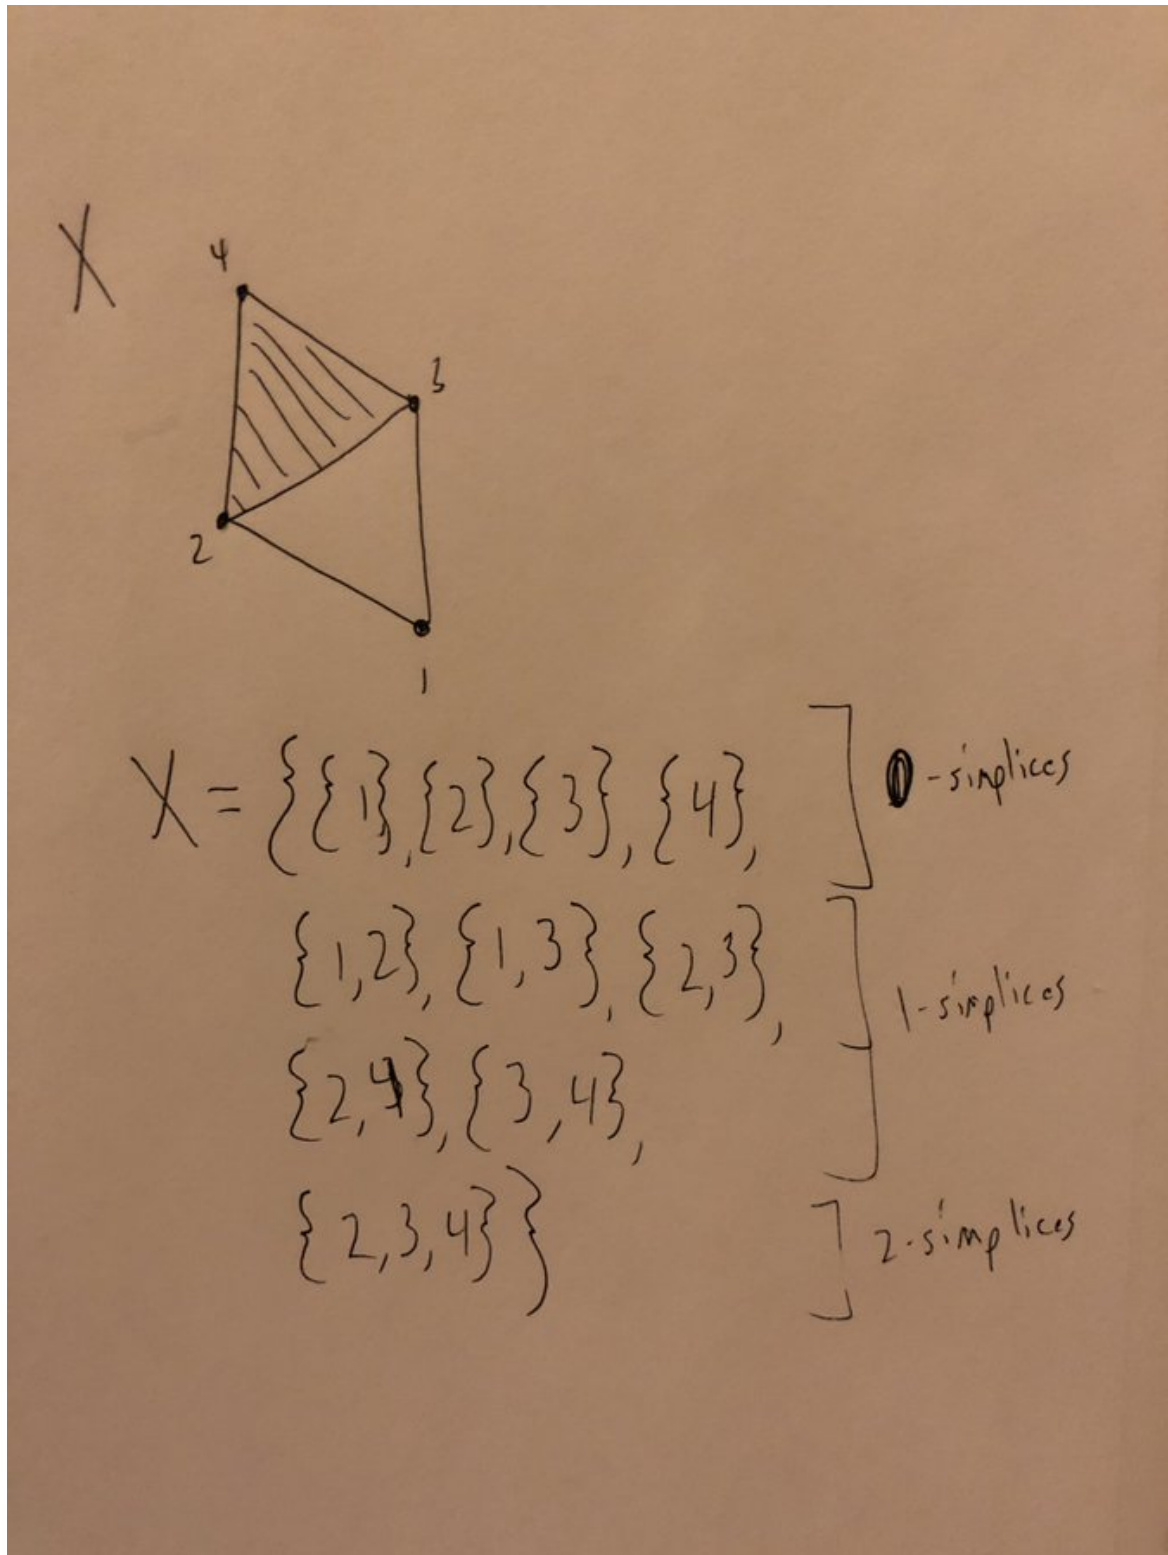 X
4
3
2
1
X = {{1}, {2}, {3}, {4}, ] 0-simplices
{1,2}, {1,3}, {2,3},
] 1-simplices
{2,4}, {3,4},
{2,3,4}} ] 2-simplices